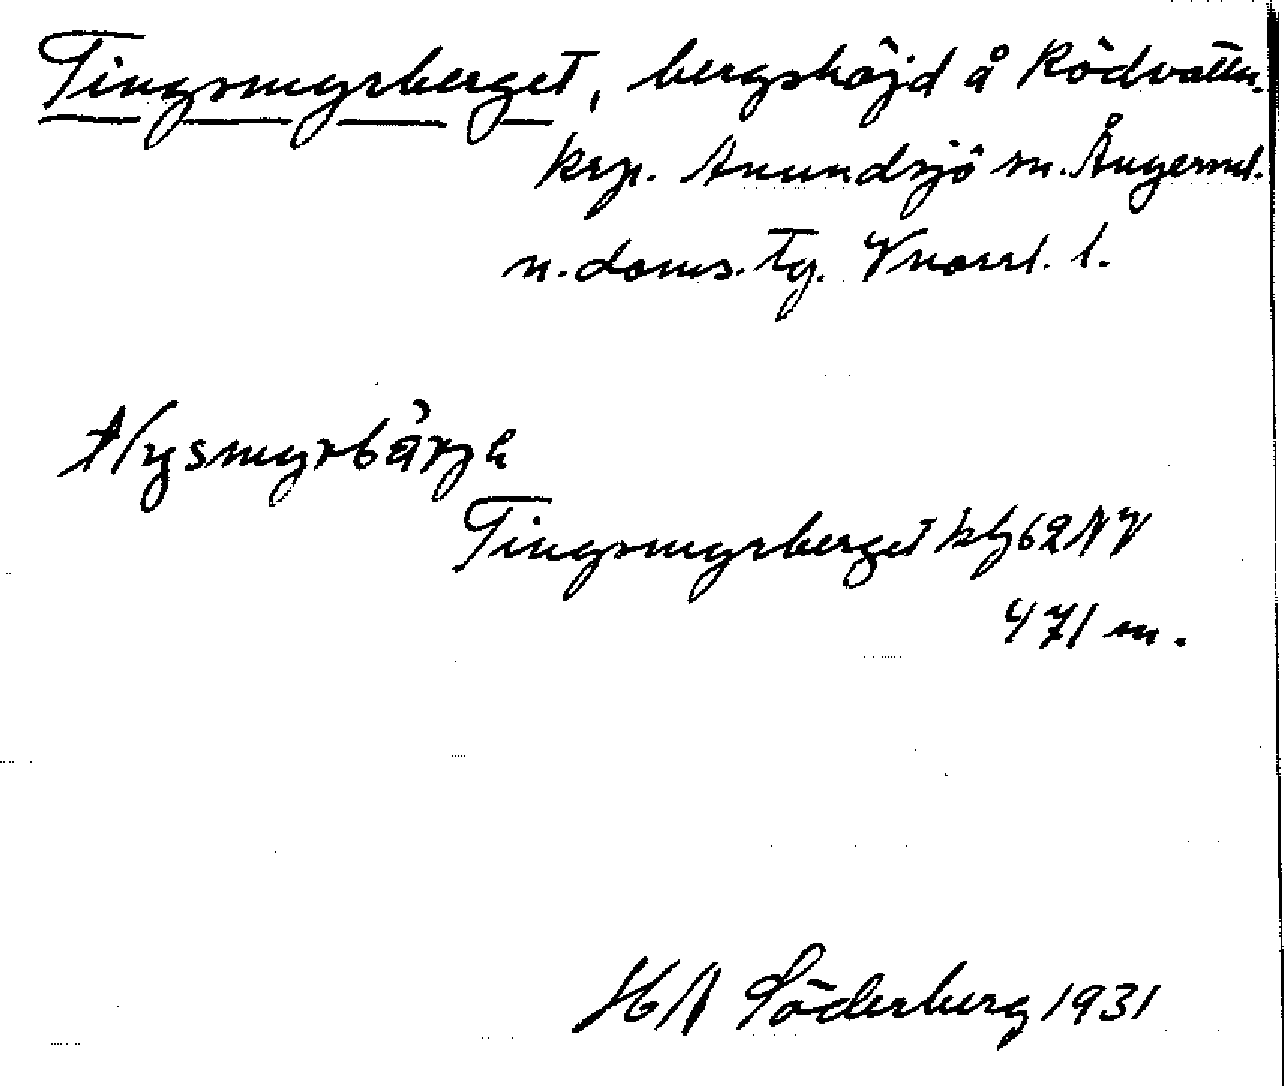 Tingsmyrberget, bergshöjd å Rödvattn.
krp. Anundsjö sn. Ångerml.
n. doms. Tg. Vnorrl. l.
Tingsmyrberget kbl 62 NV
471 m.
H A Söderberg 1931